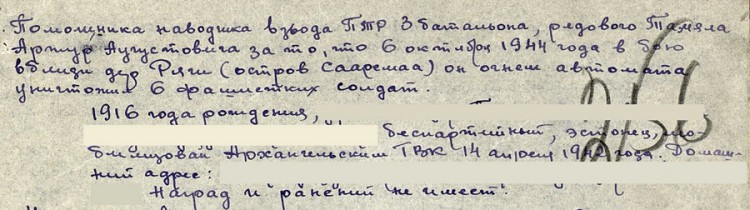 Помощника наводчика взвода ПТР 3 батальона, рядового Тамяла
Артур Аугустовича за то, что 6 октября 1944 года в бою
вблизи дер Ряги (остров Сааремаа) он огнем автомата
уничтожил 6 фашистких солдат.
1916 года рождения,
беспартийный, эстонец, мо
билизован Архангельским ГВК 14 апреля года. Домаш-
ний адрес:
Наград и ранений не имеет.